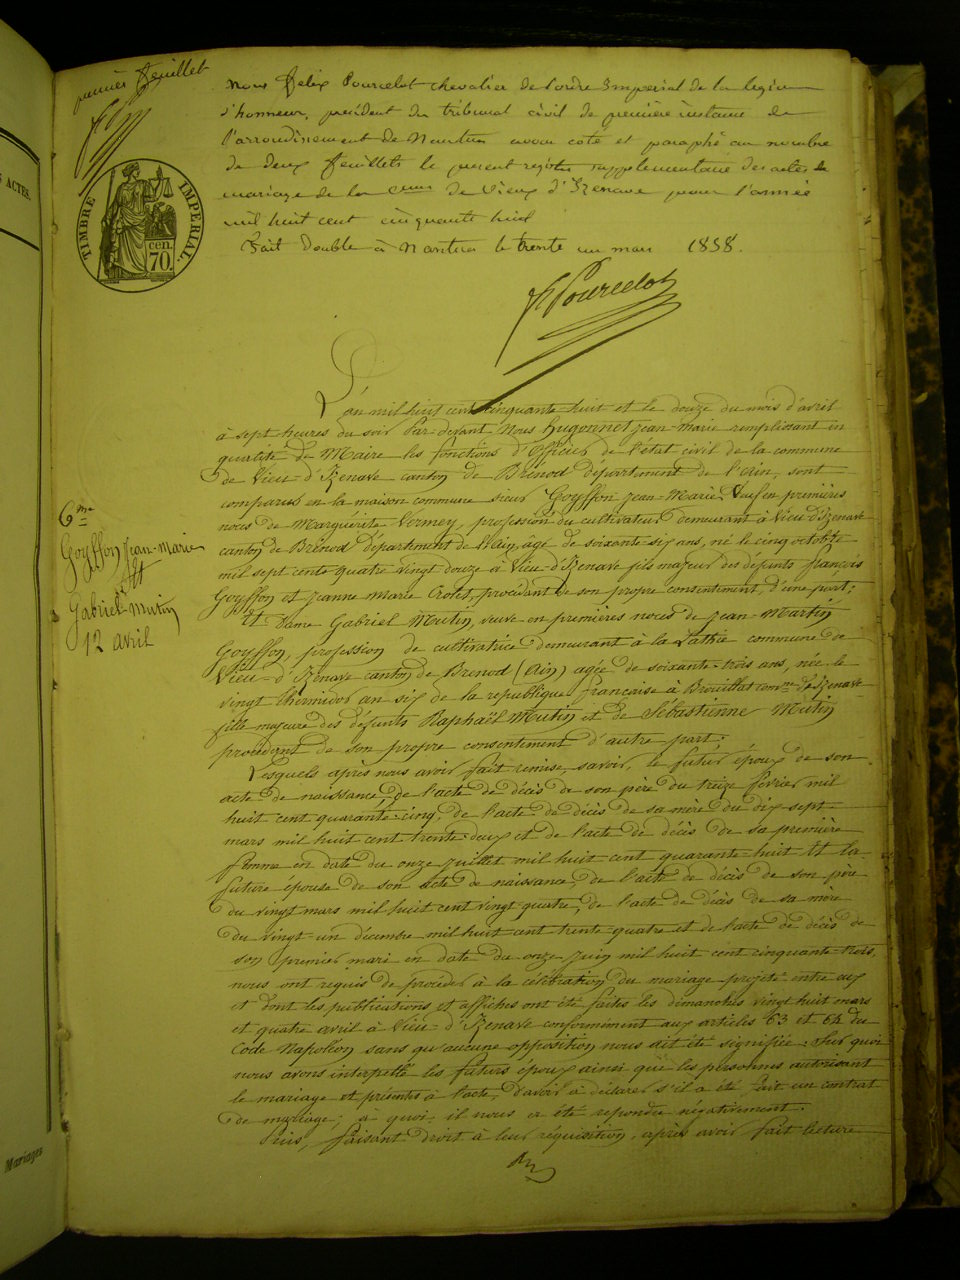 premier feuillet
Nous Félix Pourcelot chevalier de l'ordre Impérial de la légion
d'honneur, président du tribunal civil de première instance de
l'arrondissement de Nantua avons coté et paraphé au nombre
de deux feuillets le présent registre supplémentaire des actes de
mariage de la cune de Vieux d'Izenave pour l'année
mil huit cent cinquante huit
Fait double à Nantua le trente un mars 1858.
TIMBRE IMPERIAL.
70. cen.
F Pourcelot
L'an mil huit cent cinquante huit et le douze du mois d'avril
à sept heures du soir Par devant Nous Hugonnet Jean Marie remplissant en
qualité de Maire les fonctions d'Officier de l'état civil de la commune
de Vieu-d'Izenave canton de Brénod département de l'ain, sont
comparus en la maison commune sieur Goyffon Jean-Marie, Veuf en premières
noces de Marguerite Vermey, profession du cultivateur demeurant à Vieu-d'Izenave
canton de Brénod Département de l'Ain, âgé de soixante-six ans, né le cinq octobre
mil sept cents quatre vingt douze à Vieu-d'Izenave fils majeur des défunts françois
Goyffon et Jeanne Marie Crolet, procédant de son propre consentement, d'une part;
Et Dame Gabriel Mutin, veuve en premières noces de Jean-Martin
Goyffon, profession de cultivatrice demeurant à la commune de
Vieu-d'Izenave canton de Brenod (Ain) agée de soixante-trois ans, née le
vingt thermidor an six de la republique française à Brouillat comne d'Izenave
fille majeure des défunts Raphaël Mutin et de Sébastienne Mutin
procédant de son propre consentement d'autre part;
Lesquels après nous avoir fait remise, savoir, le futur époux de son
acte de naissance, de l'acte de décès de son père du treize février mil
huit cent quarante-cinq, de l'acte de décès de sa mère du dix-sept
mars mil huit cent trente-deux et de l'acte de décès de sa première
femme en date du onze Juillet mil huit cent quarante-huit Et la
future épouse de son acte de naissance, de l'acte de décès de son père
du vingt mars mil huit cent vingt quatre, de l'acte de décès de sa mère
du vingt-un décembre mil huit cent trente quatre et de l'acte de décès de
son premier mari en date du onze Juin mil huit cent cinquante-trois,
nous ont requis de procéder à la célébration du mariage projeté entre eux
et dont les publications et affiches ont été faites les dimanches vingt huit mars
et quatre avril à Vieu-d'Izenave conformément aux articles 63 et 64 du
Code Napoléon sans qu'aucune opposition nous ait été signifiée; Sur quoi
nous avons interpellé les futurs époux ainsi que les personnes autorisant
le mariage et présentes à l'acte, d'avoir à déclarer s'il a été fait un contrat
de mariage; à quoi il nous a été répondu négativement.
Puis, faisant droit à leur réquisition, après avoir fait lecture
6me
Goyffon Jean-Marie
Et
Gabriel Mutin
12 avril
ACTES.
Mariages